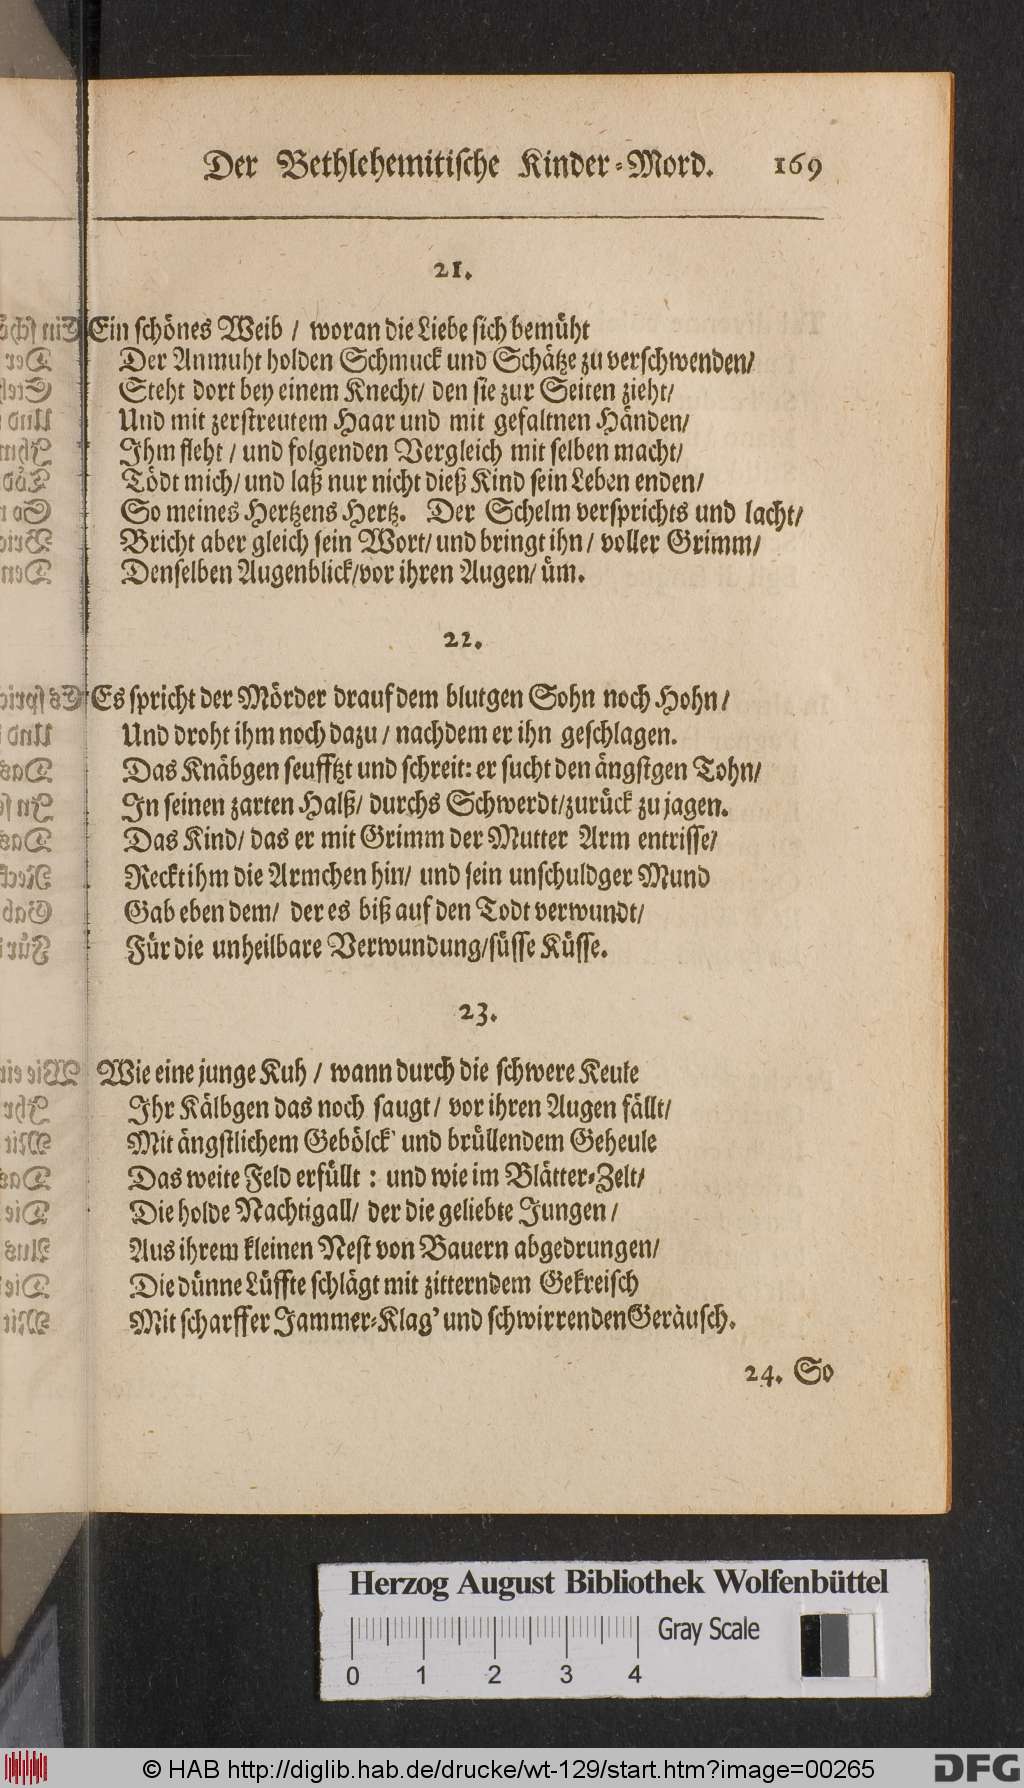 Der Bethlehemitische Kinder-Mord. 169
21.
Ein schönes Weib / woran die Liebe sich bemüht
Der Anmuht holden Schmuck und Schätze zu verschwenden/
Steht dort bey einem Knecht/ den sie zur Seiten zieht/
Und mit zerstreutem Haar und mit gefaltnen Händen/
Ihm fleht / und folgenden Vergleich mit selben macht/
Tödt mich/ und laß nur nicht dieß Kind sein Leben enden/
So meines Hertzens Hertz. Der Schelm versprichts und lacht/
Bricht aber gleich sein Wort/ und bringt ihn / voller Grimm/
Denselben Augenblick/vor ihren Augen/ üm.
22.
Es spricht der Mörder drauf dem blutgen Sohn noch Hohn /
Und droht ihm noch dazu / nachdem er ihn geschlagen.
Das Knäbgen seufftzt und schreit: er sucht den ängstgen Tohn/
In seinen zarten Halß/ durchs Schwerdt/zurück zu jagen.
Das Kind/ das er mit Grimm der Mutter Arm entrisse/
Reckt ihm die Armchen hin/ und sein unschuldger Mund
Gab eben dem/ der es biß auf den Todt verwundt/
Für die unheilbare Verwundung/süsse Küsse.
23.
Wie eine junge Kuh / wann durch die schwere Keule
Ihr Kälbgen das noch saugt/ vor ihren Augen fällt/
Mit ängstlichem Gebölck' und brüllendem Geheule
Das weite Feld erfüllt : und wie im Blätter-Zelt/
Die holde Nachtigall/ der die geliebte Jungen /
Aus ihrem kleinen Nest von Bauern abgedrungen/
Die dünne Lüffte schlägt mit zitterndem Gekreisch
Mit scharffer Jammer-Klag' und schwirrenden Geräusch.
24. So
Herzog August Bibliothek Wolfenbüttel
Gray Scale
0 1 2 3 4
© HAB http://diglib.hab.de/drucke/wt-129/start.htm?image=00265
DFG